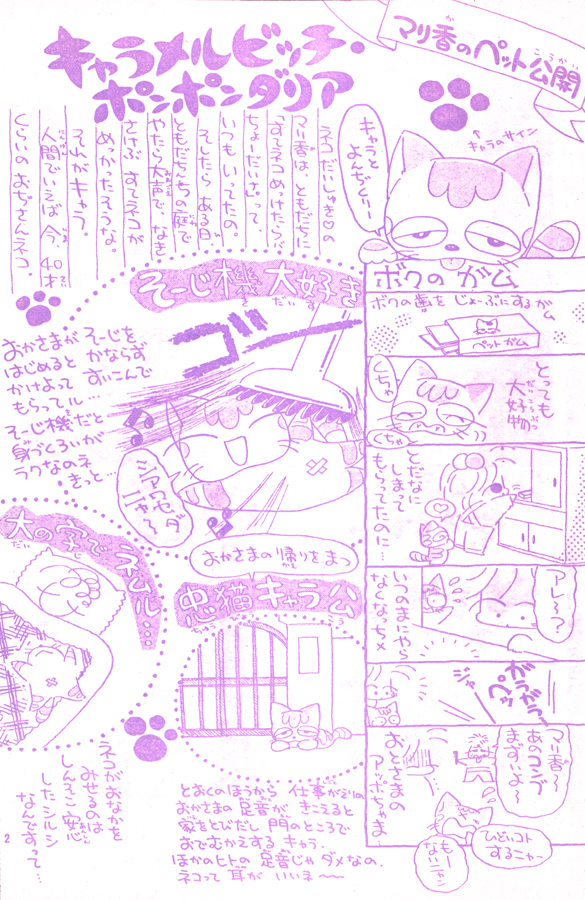 マリ香のペット公開
キャラメルビッチ・
ポンポンダリア
↑キャラのサイン
キャラと
よんぢくりー
ネコだいしゅき♡の
マリ香は、ともだちに
「すてネコめっけたらバ
ちょーだいさ」って、
いつもいってたの。
そしたらある日、
ともだちんちの庭で
やたら大声で、なき
さけぶすてネコが
めっかったそうな。
それがキャラ。
人間でいえば今、40才
くらいのおぢさんネコ。
そーじ機大好き
ゴー
おかさまがそーじを
はじめるとかならず
かけよってすいこんで
もらってル…
そーじ機だと
身づくろいが
ラクなのネ
きっと…
シアワセダ
ニャ〜
大の字でネムル…
ネコがおなかを
みせるのは
しんそこ安心
したシルシ
なんですって…
おかさまの帰りをまつ
忠猫キャラ公
とおくのほうから仕事がえりの
おかさまの足音がきこえると
家をとびだし門のところで
おでむかえするキャラ。
ほかのヒトの足音じゃダメなの。
ネコって耳がいいネ〜
ボクのガム
ボクの歯をじょーぶにするガム
ペットガム
とっても
大好物
くちゃ
くちゃ
とだなに
しまって
もらってたのに…
アレ〜?
いつのまにやら
なくなっちメ
がらがらー
ペッ
ジャー
マリ香〜
あのコンブ
まずいよ〜
おとさまの
アッポちゃま
ひどいコト
するニャー
もー
ないニャン
2